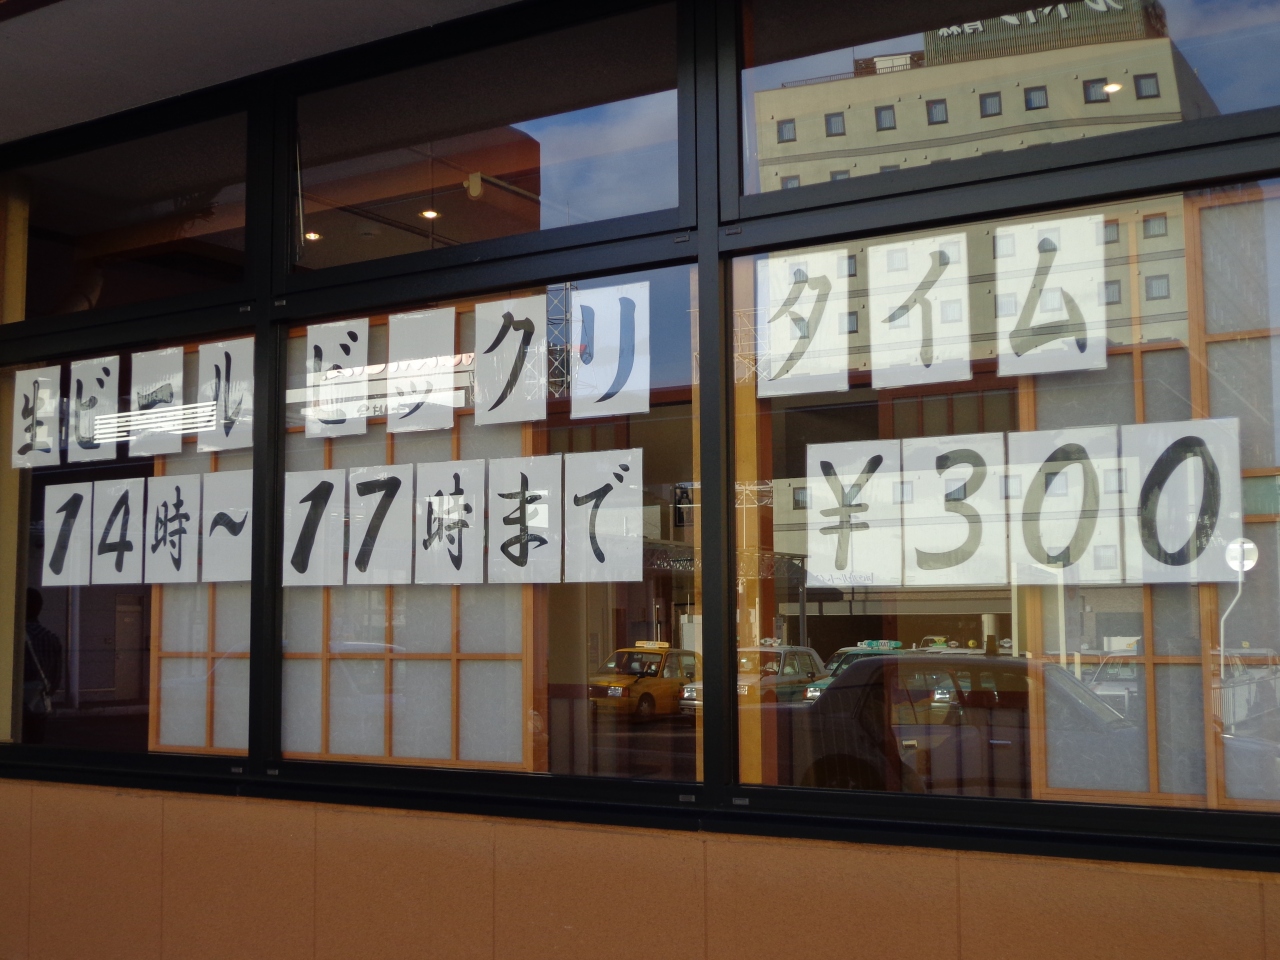 生ビール ビックリ タイム
14時～17時まで ¥300